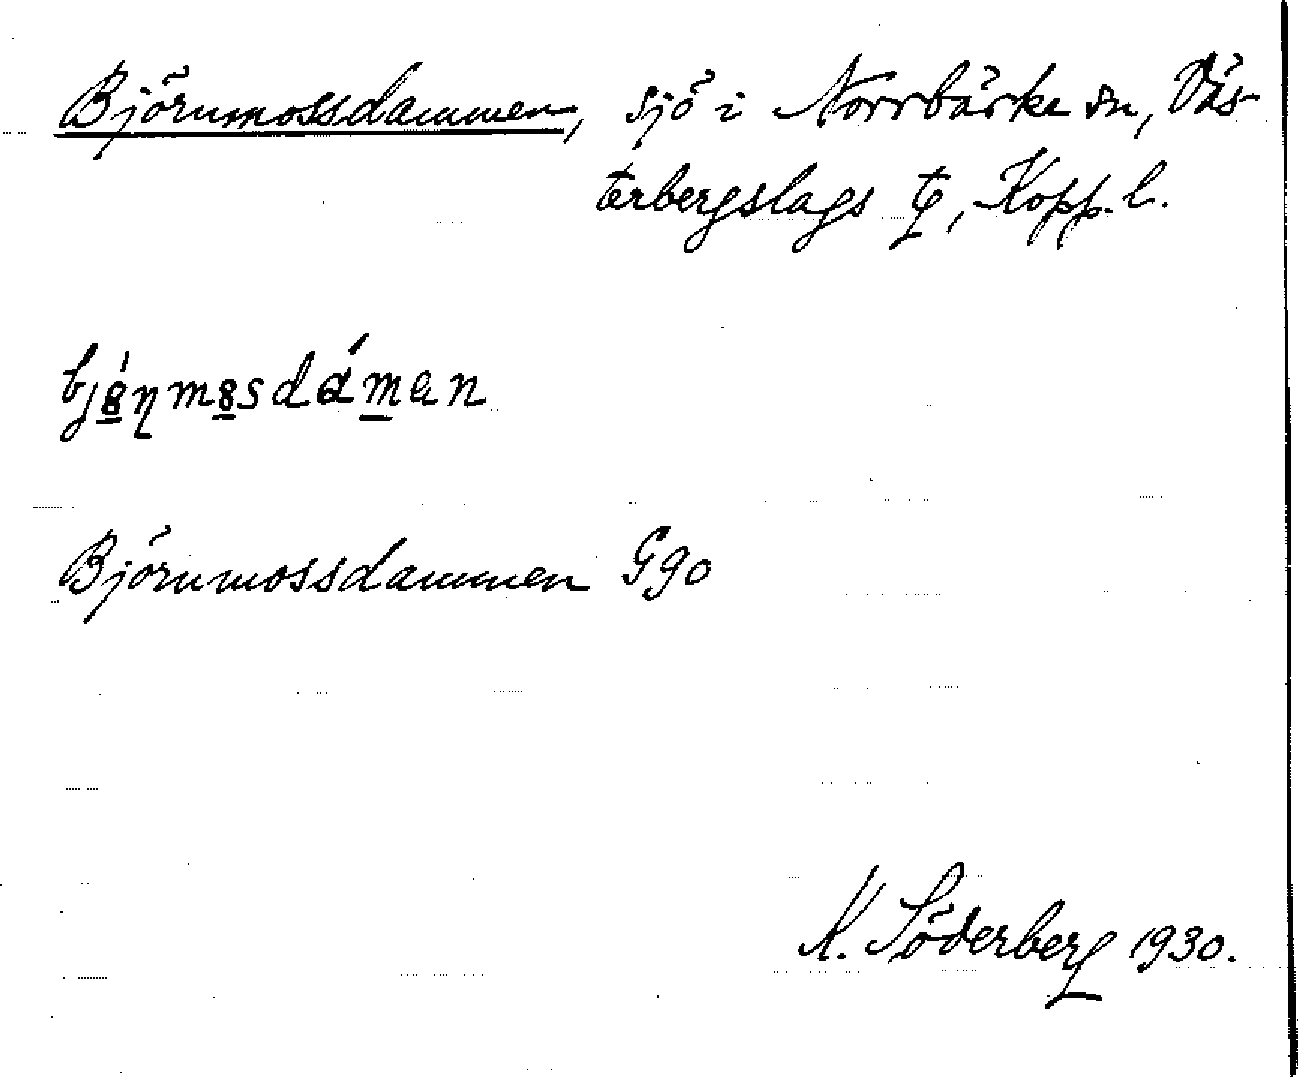 Björnmossdammen, sjö i Norrbärke sn, Väs-
terbergslags tg, Kopp. l.
Björnmossdammen Ggo
K. Söderberg 1930.